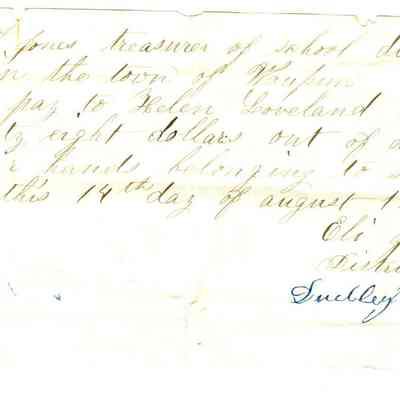 Jones treasurer of school di
n the town of Waupun
pay to Helen Loveland
ty eight dollars out of
r hands belonging to
this 14th day of august 1
Eli
Distri